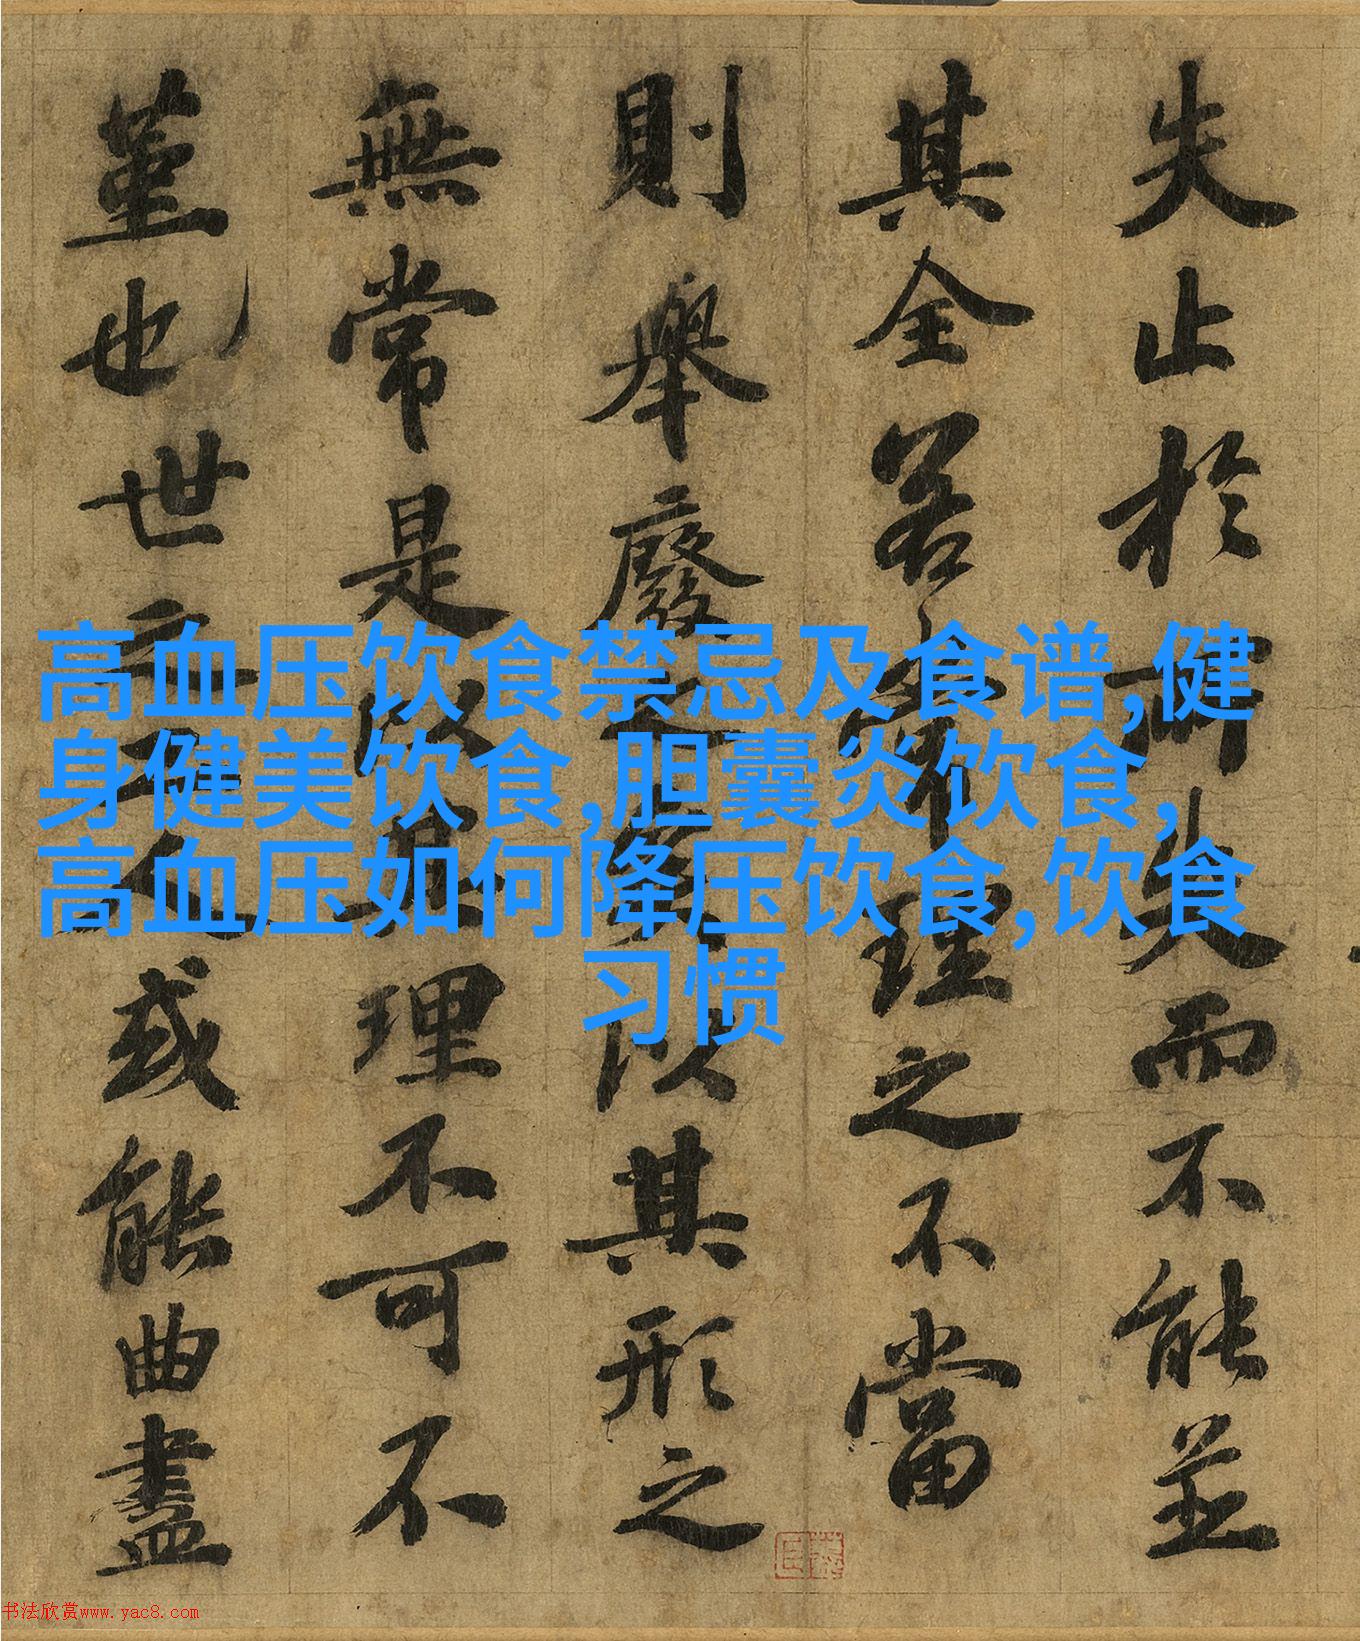 失止於所失而不能並
其全若常理之不當
則舉廢之矣以其形之
無常是以其理不可不
堇也世之工人或能曲盡
高血压饮食禁忌及食谱,健
身健美饮食,胆囊炎饮食,
高血压如何降压饮食,饮食
习惯
书法欣赏www.yac8.com